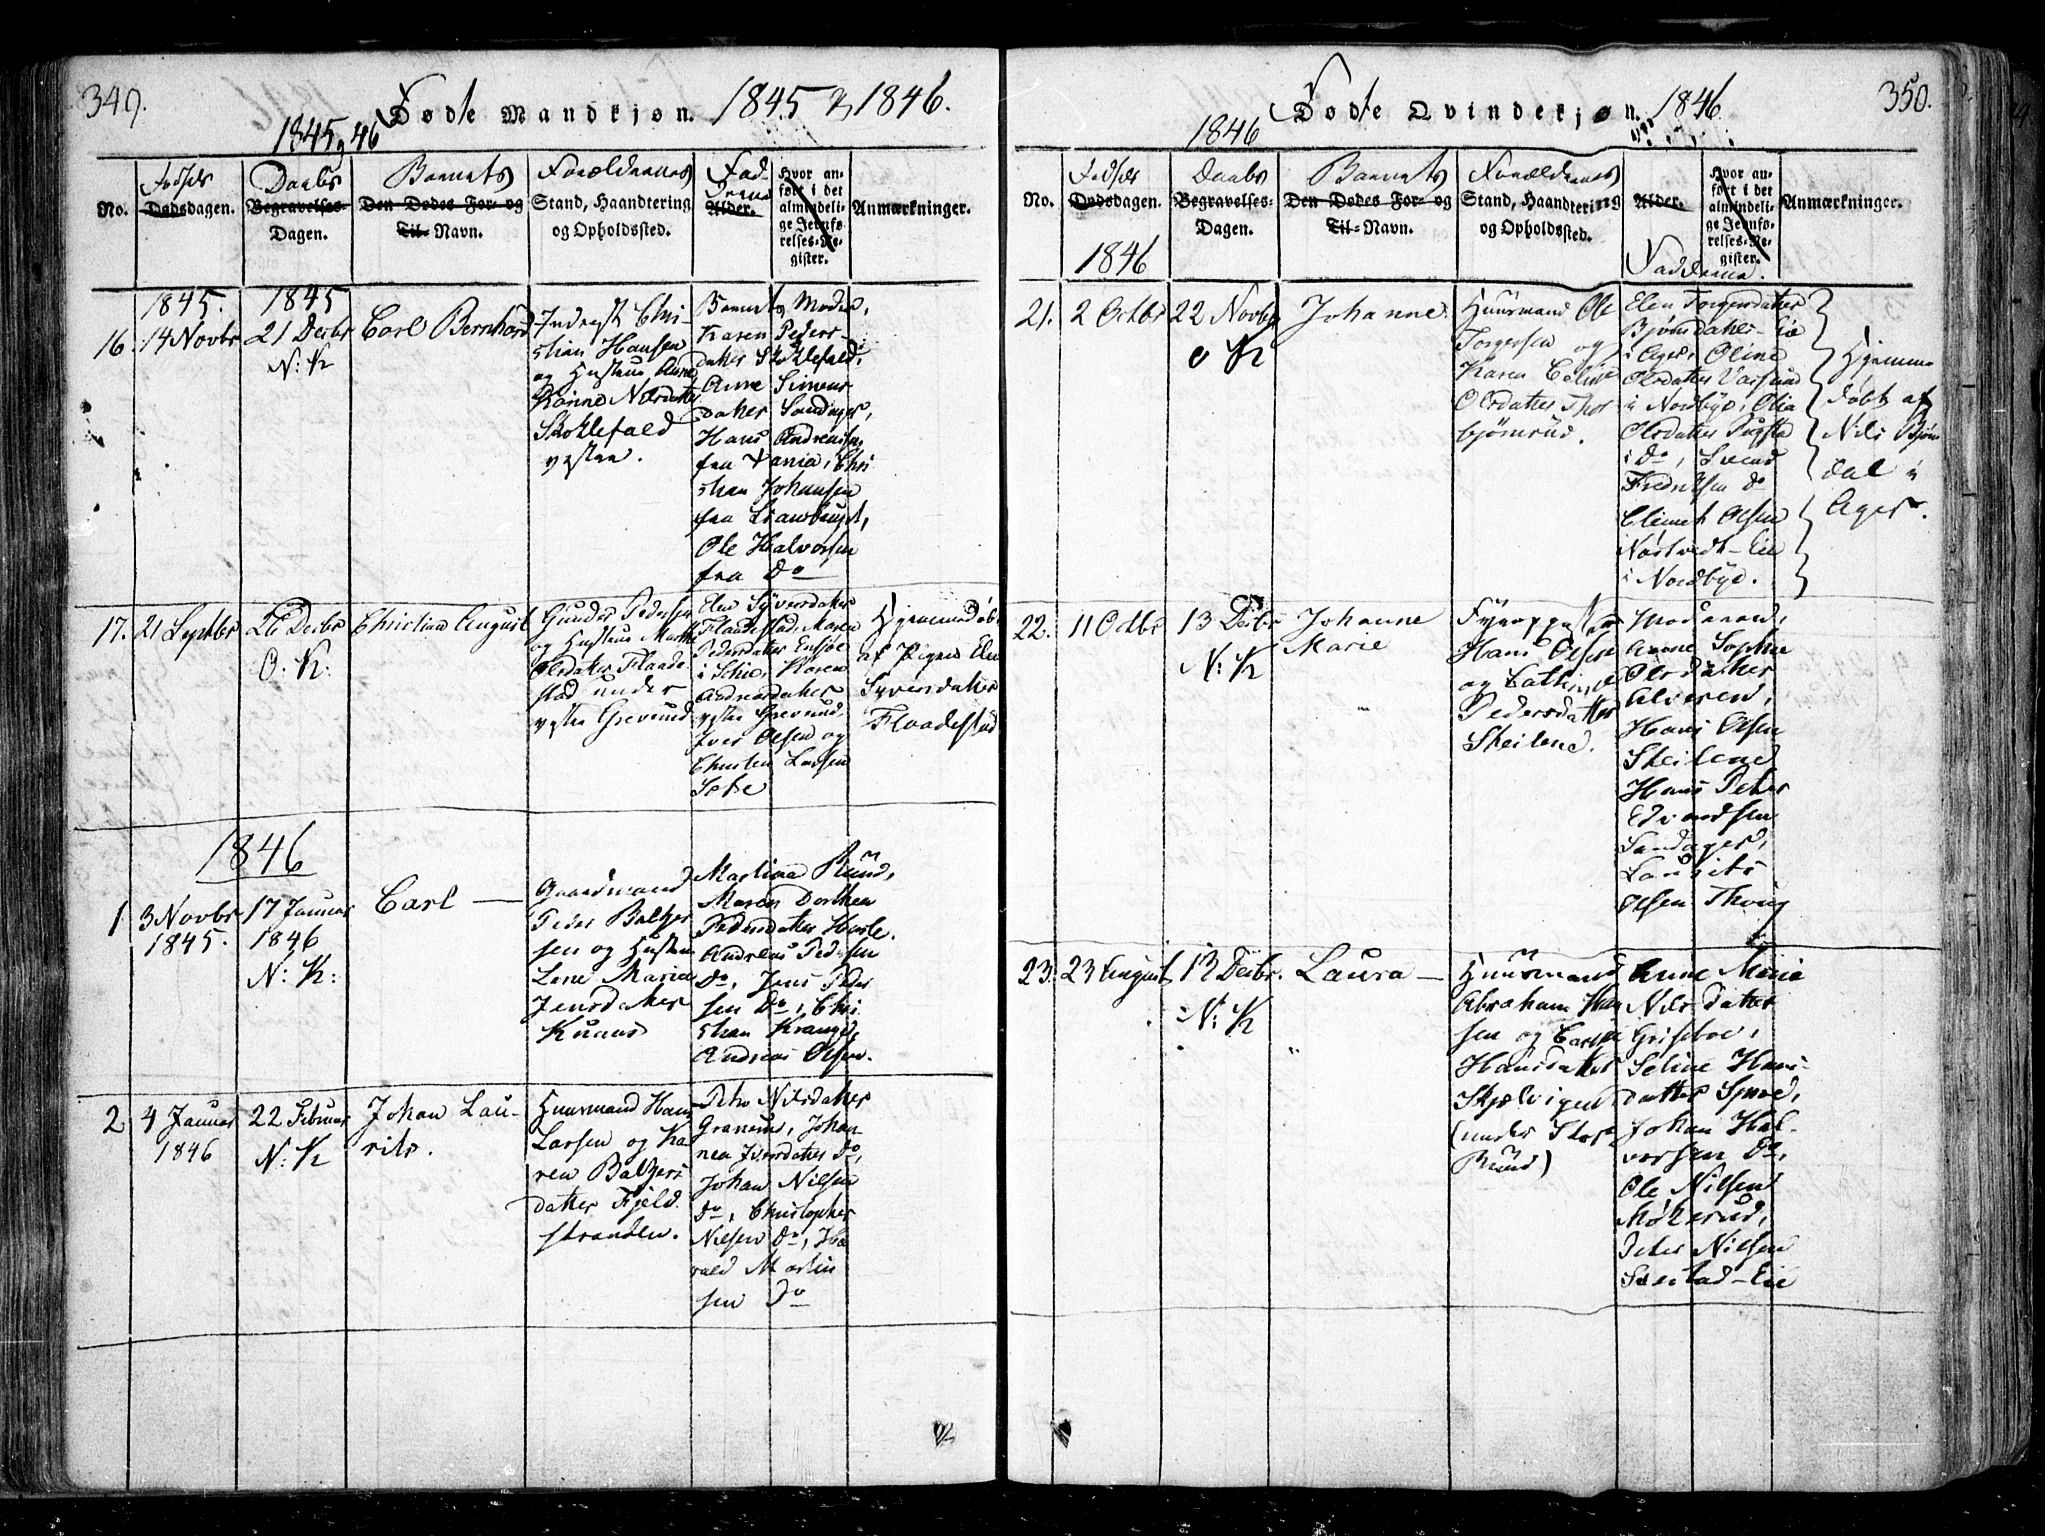 349.
Fødte Mandkjøn. 1845 & 1846.
1845 & 46
No.
Fødsels
Dødsdagen.
Daabs
Begravelses-
Dagen.
Barnets
Den Dødes For- og
Til-Navn.
Forældrenes
Stand, Haandtering
og Opholdssted.
Fad-
derne
Alder.
Hvor an-
ført i det
almindeli-
ge Jevnfø-
relses-Re-
gister.
Anmærkninger.
16
1845.
14 Novbr
1845
21 Decbr
N: K
Carl Bernhard
Inderst Chri-
stian Hansen
og Hustrue Anne
Nilsdatter
Skoklefald
vestre.
Barnets Moder,
Karen Peders-
datter Skoklefald,
Anne Simens-
datter Sandager,
Hans Andreasen
fra Chri-
stian Johansen
fra
Ole Halvorsen
fra Do
17.
21 Septbr
26 Decbr
O: K:
Christian August
Gunder Pedersen
og Hustrue Marthe
Olsdatter Flaade-
stad under
vestre Greverud
Elen Syversdatter
Flaadestad, Maren
Pedersdatter
i Schie, Karen
Andersdatter
vestre Greverud
Iver Olsen og
Christen Larsen
Hjemmedøbt
af Pigen Elen
Syversdatter
Flaadestad
1846
1
3 Novbr
1845.
17 Januar
1846
N: K:
Carl —
Gaardmand
Peder Baltzer
sen og Hustrue
Lene Maria
Jensdatter
Knaus
Martina Ruud,
Maren Dorthea
Pedersdatter
Andreas Pedersen
Do, Jens Peder
sen Do, Chri
stian Krange,
Andreas Olsen.
2
4 Januar
1846
22 Februar
N: K
Johan Lau-
rits.
Huusmand Hans
Larsen og Ka
ren Baltzers
datter Fjeld
stranden.
Nilsdatter
Granerud, Johan
nea Iversdatter Do,
Johan Nilsen
Do, Christopher
Nilsen Do, Ha
rald Martin
sen Do
350.
Fødte Qvindekjøn. 1846.
1846
No.
Fødsels
Dødsdagen.
1846
Daabs
Begravelses-
Dagen.
Barnets
Den Dødes For- og
Til-Navn.
Forældrenes
Stand, Haandtering
og Opholdssted.
Alder.
Fadderne.
Hvor an-
ført i det
almindeli-
ge Jevnfø-
relses-Re-
gister.
Anmærkninger.
21.
2 Octbr
22 Novbr
O K
Johanne
Huusmand Ole
Torgersen og
Karen Celine
Olsdatter Thor
bjørnrud.
Elen Torgersdatter
Bjørndahls-Eie
i Ager, Oline
Olsdatter
i Nordbye, Olia
Olsdatter
i Do, Svend
Fredriksen Do
Clemet Olsen
Nøstvedt-Eie
i Nordbye.
Hjemme
døbt af
Nils Bjørn
dal i
Ager.
22.
11 Octbr
13 Decbr
N: K
Johanne
Marie
Hans Olsen
og Cathrine
Pedersdatter
Steilene.
Moderen,
Anne Sophie
Olsdatter
Alveren,
Hans Olsen
Steilene
Hans Peter
Edvardsen
Sandager,
Laurits
Olsen
23.
23 August
13 Decbr.
N: K
Laura —
Huusmand
Abraham Han
sen og
Hansdatter
Skjælvigen
(under Store
Ruud)
Anne Marie
Nilsdatter
Griseboe,
Seline Hans-
datter
Johan Hal-
vorsen Do,
Ole Nilsen
Møkerud,
Peter Nilsen